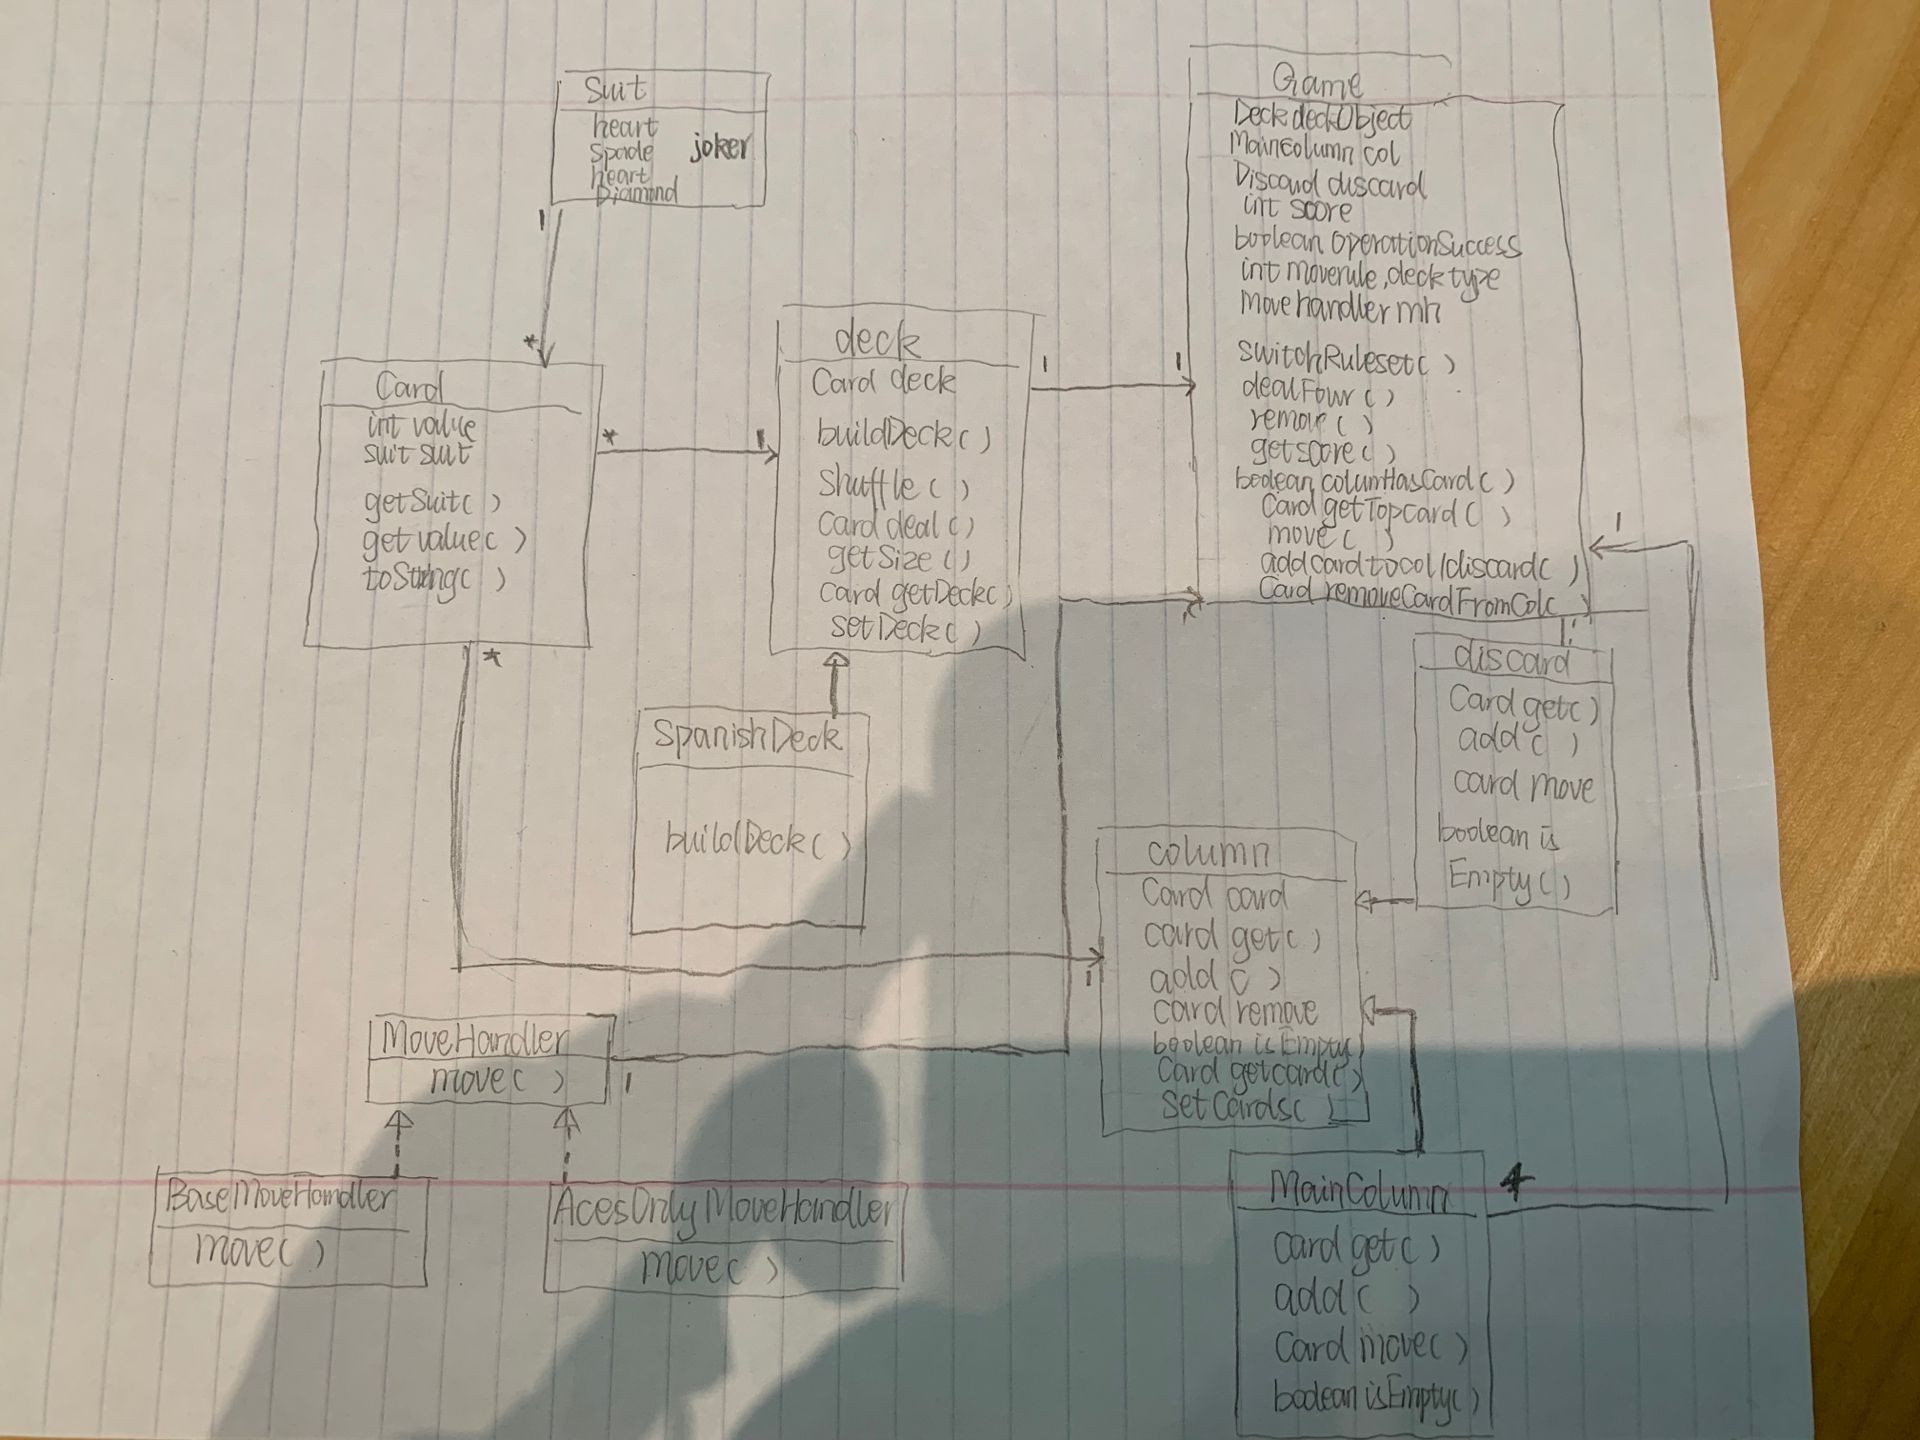 Suit
heart
spade joker
heart
Diamond
1
*
Card
int value
suit suit
getSuit( )
getvalue( )
toString( )
*
1
*
deck
Card deck
buildDeck( )
Shuffle( )
Card deal( )
getSize( )
Card getDeck( )
setDeck( )
1
1
Game
Deck deckObject
MainColumn col
Discard discard
int score
boolean OperationSuccess
int moverule, deck type
Movehandler mh
SwitchRuleset( )
dealFour( )
remove( )
getscore( )
boolean columHasCard( )
Card getTopCard( )
move( )
addcardtocol/discard( )
Card removeCardFromCol( )
*
1
1
discard
Card get( )
add( )
card move
boolean is
Empty( )
SpanishDeck
buildDeck( )
column
Card card
card get( )
add( )
card remove
boolean isEmpty( )
Card getcard( )
SetCards( )
1
MoveHandler
move( )
1
BaseMoveHandler
move( )
AcesOnlyMoveHandler
move( )
MainColumn
4
Card get( )
add( )
Card move( )
boolean isEmpty( )